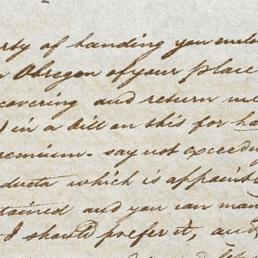 erty of handing you enclo
n Obregon of your place
covering and return me
) in a bill on this for ha
remium - say not exceedi
ducta which is appoint
tained and you can man
- I should prefer it, and